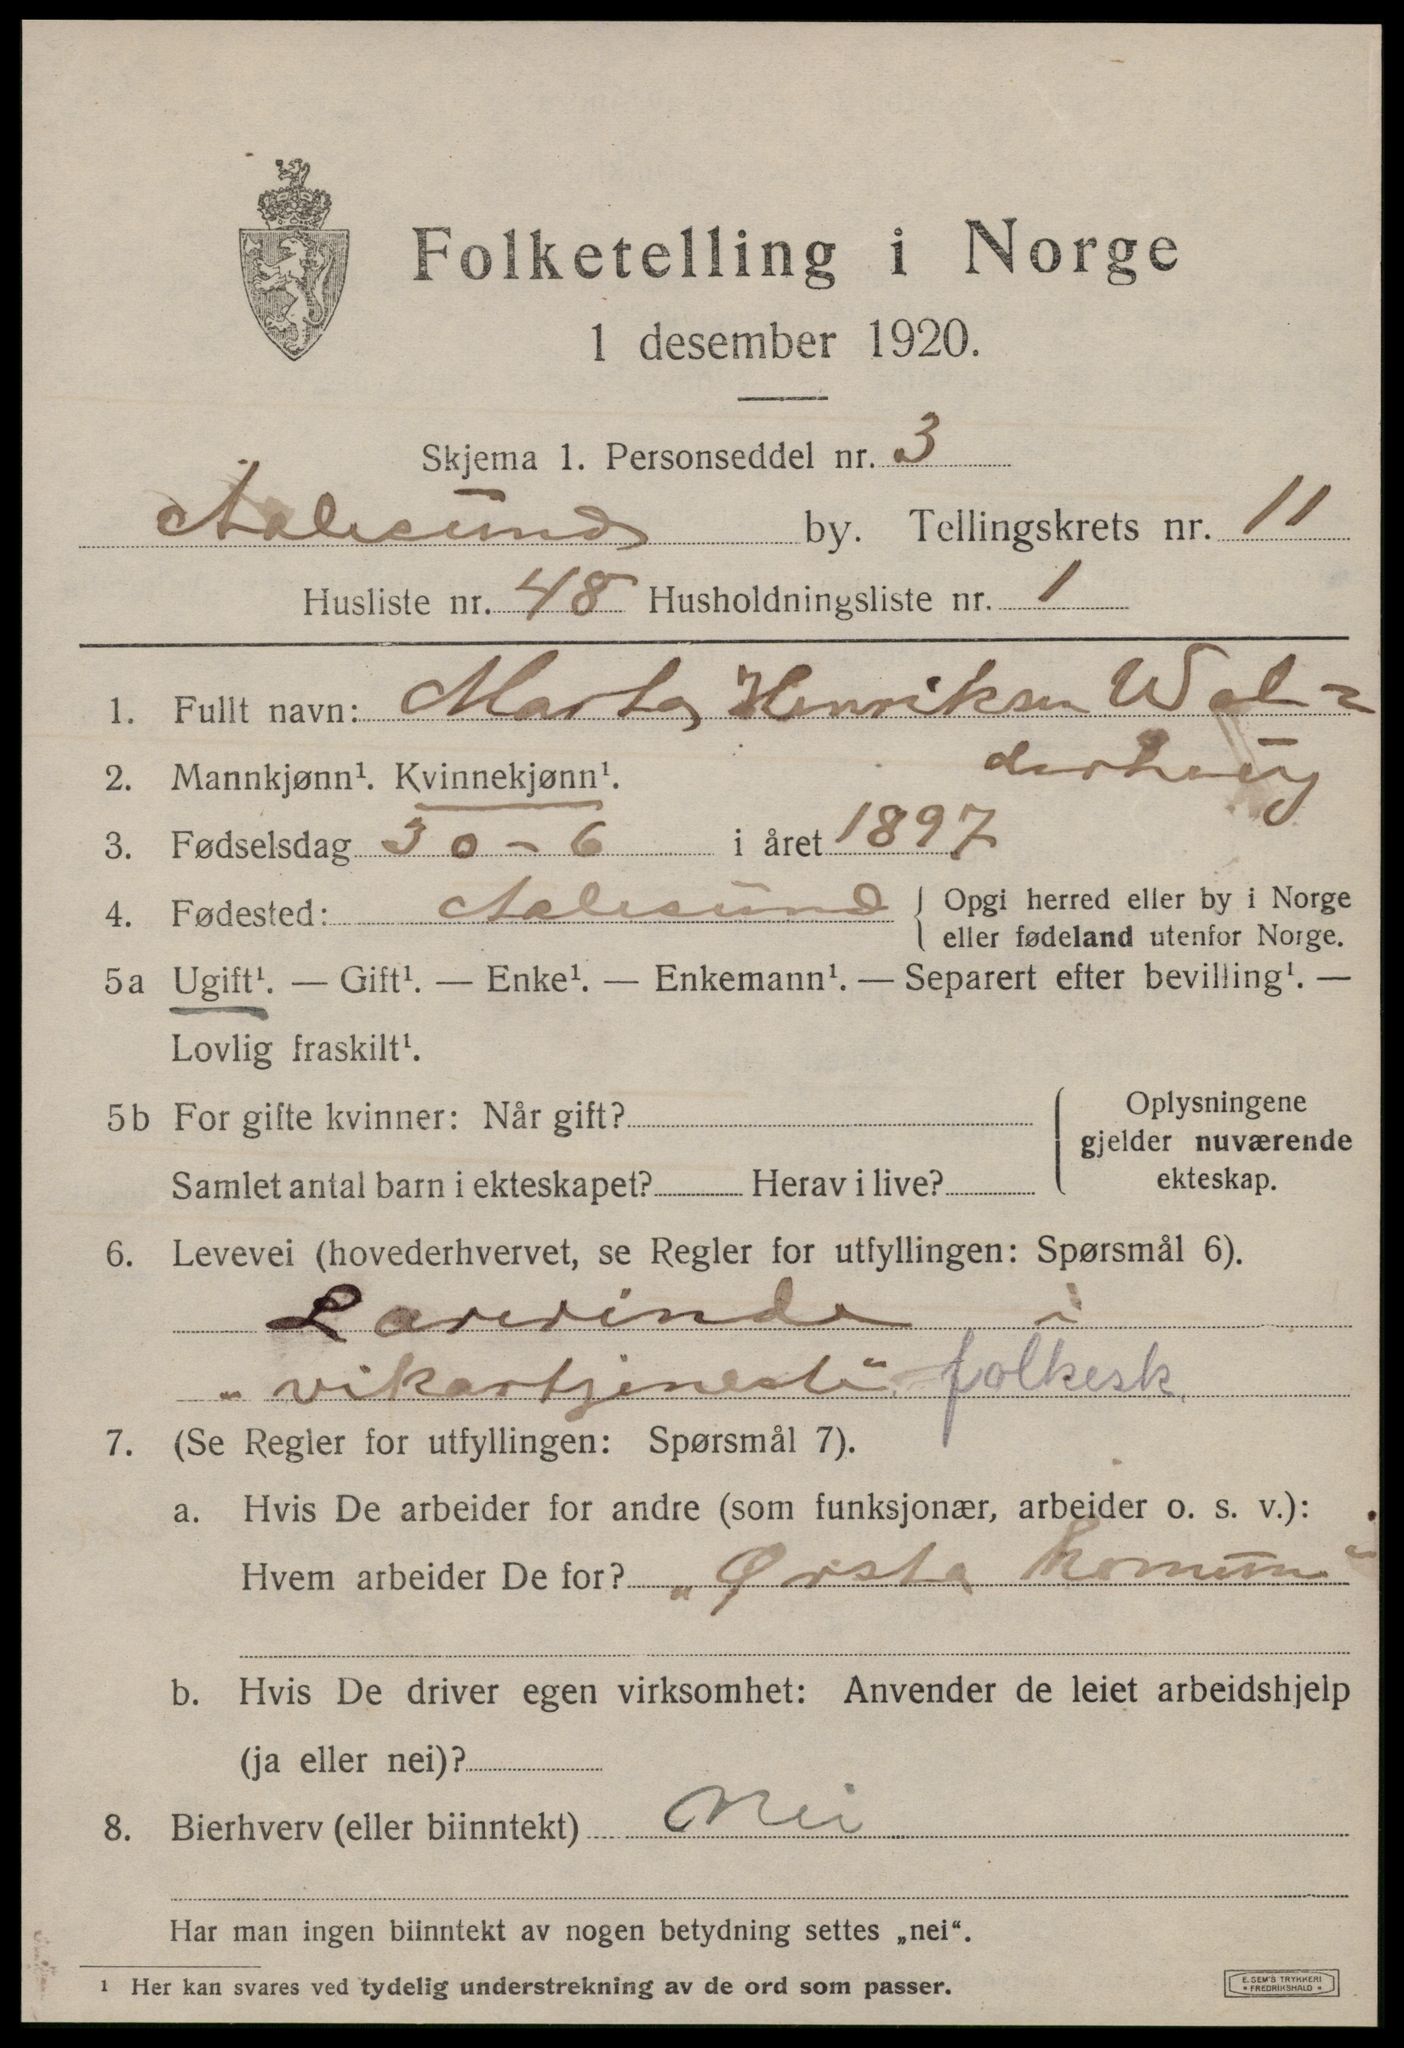 Folketelling i Norge
1 desember 1920.
Skjema 1. Personseddel nr. 3
Aalesund by. Tellingskrets nr. 11
Husliste nr. 48 Husholdningsliste nr. 1
1. Fullt navn: Marta Henriksen Wal=
derhaug
2. Mannkjønn¹. Kvinnekjønn¹.
3. Fødselsdag 30 - 6 i året 1897
4. Fødested: Aalesund { Opgi herred eller by i Norge
eller fødeland utenfor Norge.
5a Ugift¹. — Gift¹. — Enke¹. — Enkemann¹. — Separert efter bevilling¹. —
Lovlig fraskilt¹.
5b For gifte kvinner: Når gift?
Samlet antal barn i ekteskapet? Herav i live?
Oplysningene
gjelder nuværende
ekteskap.
6. Levevei (hovederhvervet, se Regler for utfyllingen: Spørsmål 6).
Lærerinde i
„vikartjeneste" folkesk.
7. (Se Regler for utfyllingen: Spørsmål 7).
a. Hvis De arbeider for andre (som funksjonær, arbeider o. s. v.):
Hvem arbeider De for? „Ørsta komun"
b. Hvis De driver egen virksomhet: Anvender de leiet arbeidshjelp
(ja eller nei)?
8. Bierhverv (eller biinntekt) Nei
Har man ingen biinntekt av nogen betydning settes „nei“.
¹ Her kan svares ved tydelig understrekning av de ord som passer.
E. SEM'S TRYKKERI
• FREDRIKSHALD •